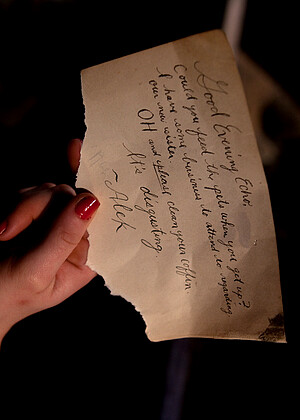 Good Evening Echo,
Could you feed the pets when you get up?
I have some business to attend to regarding
our new sister.
OH and please clean your coffin.
It's disgusting.
~Alek